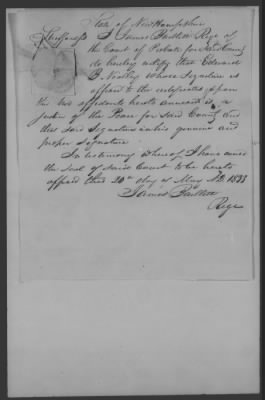 State of New Hampshire
Strafford ss I James Bartlett Regr of
the Court of Probate for Said County
do hereby certify that Edward
B. whose Signature is
affixed to the certificates upon
the two affidavits hereto annexed is a
Justice of the Peace for Said County and
that said Signature is his genuine and
proper Signature.
In testimony whereof I have caused
the Seal of Said Court to be hereto
affixed this 20th day of May AD 1833
James Bartlett
Regr